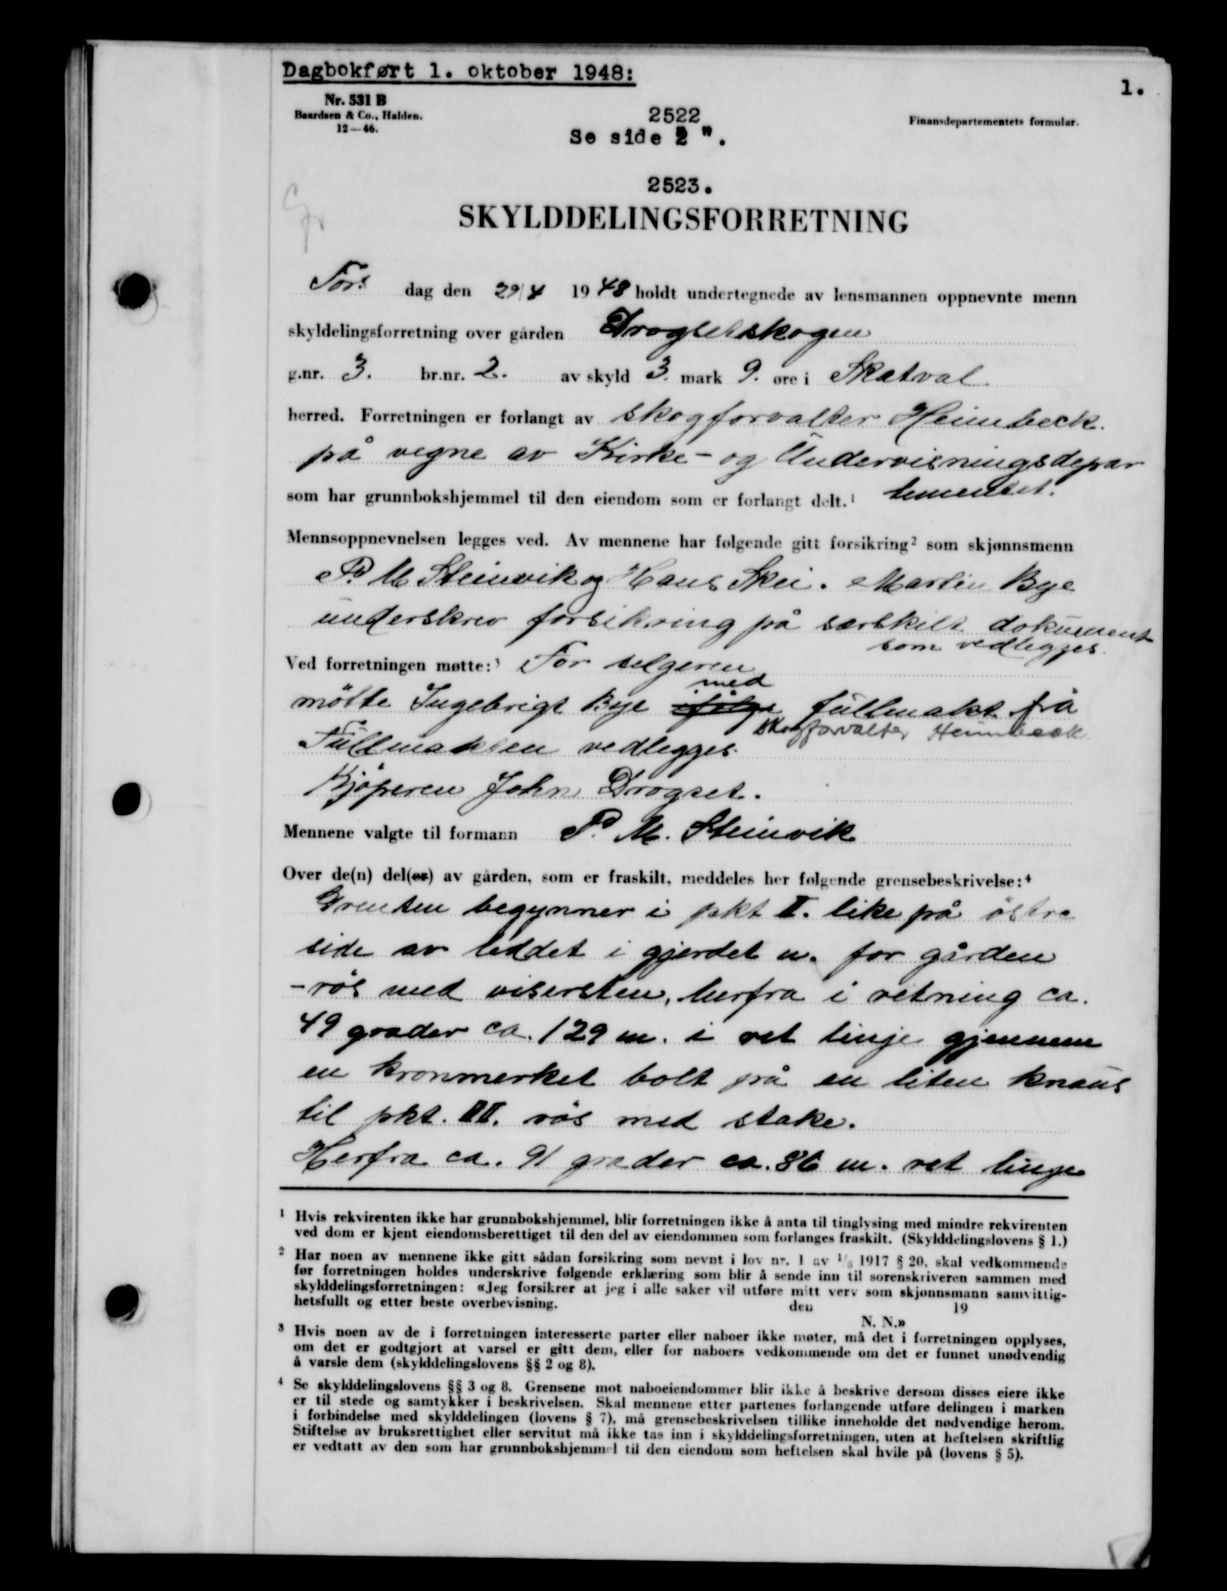 Dagbokført 1. oktober 1948:
1.
Nr. 531 B
Baardsen & Co., Halden.
12—46.
Finansdepartementets formular.
2522
Se side 2 ".
2523.
SKYLDDELINGSFORRETNING
Tors dag den 29/4 1948 holdt undertegnede av lensmannen oppnevnte menn
skyldelingsforretning over gården Drogsetskogen
g.nr. 3. br.nr. 2. av skyld 3. mark 9. øre i Skatval
herred. Forretningen er forlangt av skogforvalter Heimbeck.
på vegne av Kirke- og Undervisningsdepar
som har grunnbokshjemmel til den eiendom som er forlangt delt.¹ tementet.
Mennsoppnevnelsen legges ved. Av mennene har følgende gitt forsikring² som skjønnsmenn
P. M Steinvik og Hans Skei. Martin Bye
underskrev forsikring på særskilt dokument
som vedlegges.
Ved forretningen møtte:³ For selgeren
med
møtte Ingebrigt Bye ifølge fullmakt frå
skogforvalter Heimbeck
Fullmakten vedlegges.
Kjøperen John Drogset.
Mennene valgte til formann P. M. Steinvik
Over de(n) del(er) av gården, som er fraskilt, meddeles her følgende grensebeskrivelse:⁴
Grensen begynner i pkt II. like på östre
side av leddet i gjerdet n. for gården
-rös med visersten, herfra i retning ca.
49 grader ca. 129 m. i ret linje gjennem
en kronmerket bolt på en liten knaus
til pkt. III. rös med stake.
Herfra ca. 91 grader ca. 86 m. ret linje
¹ Hvis rekvirenten ikke har grunnbokshjemmel, blir forretningen ikke å anta til tinglysing med mindre rekvirenten
ved dom er kjent eiendomsberettiget til den del av eiendommen som forlanges fraskilt. (Skylddelingslovens § 1.)
² Har noen av mennene ikke gitt sådan forsikring som nevnt i lov nr. 1 av 1/6 1917 § 20, skal vedkommende
før forretningen holdes underskrive følgende erklæring som blir å sende inn til sorenskriveren sammen med
skylddelingsforretningen: «Jeg forsikrer at jeg i alle saker vil utføre mitt verv som skjønnsmann samvittig-
hetsfullt og etter beste overbevisning. den 19
N. N.»
³ Hvis noen av de i forretningen interesserte parter eller naboer ikke møter, må det i forretningen opplyses,
om det er godtgjort at varsel er gitt dem, eller for naboers vedkommende om det er funnet unødvendig
å varsle dem (skylddelingslovens §§ 2 og 8).
⁴ Se skylddelingslovens §§ 3 og 8. Grensene mot naboeiendommer blir ikke å beskrive dersom disses eiere ikke
er til stede og samtykker i beskrivelsen. Skal mennene etter partenes forlangende utføre delingen i marken
i forbindelse med skylddelingen (lovens § 7), må grensebeskrivelsen tillike inneholde det nødvendige herom.
Stiftelse av bruksrettighet eller servitut må ikke tas inn i skylddelingsforretningen, uten at heftelsen skriftlig
er vedtatt av den som har grunnbokshjemmel til den eiendom som heftelsen skal hvile på (lovens § 5).